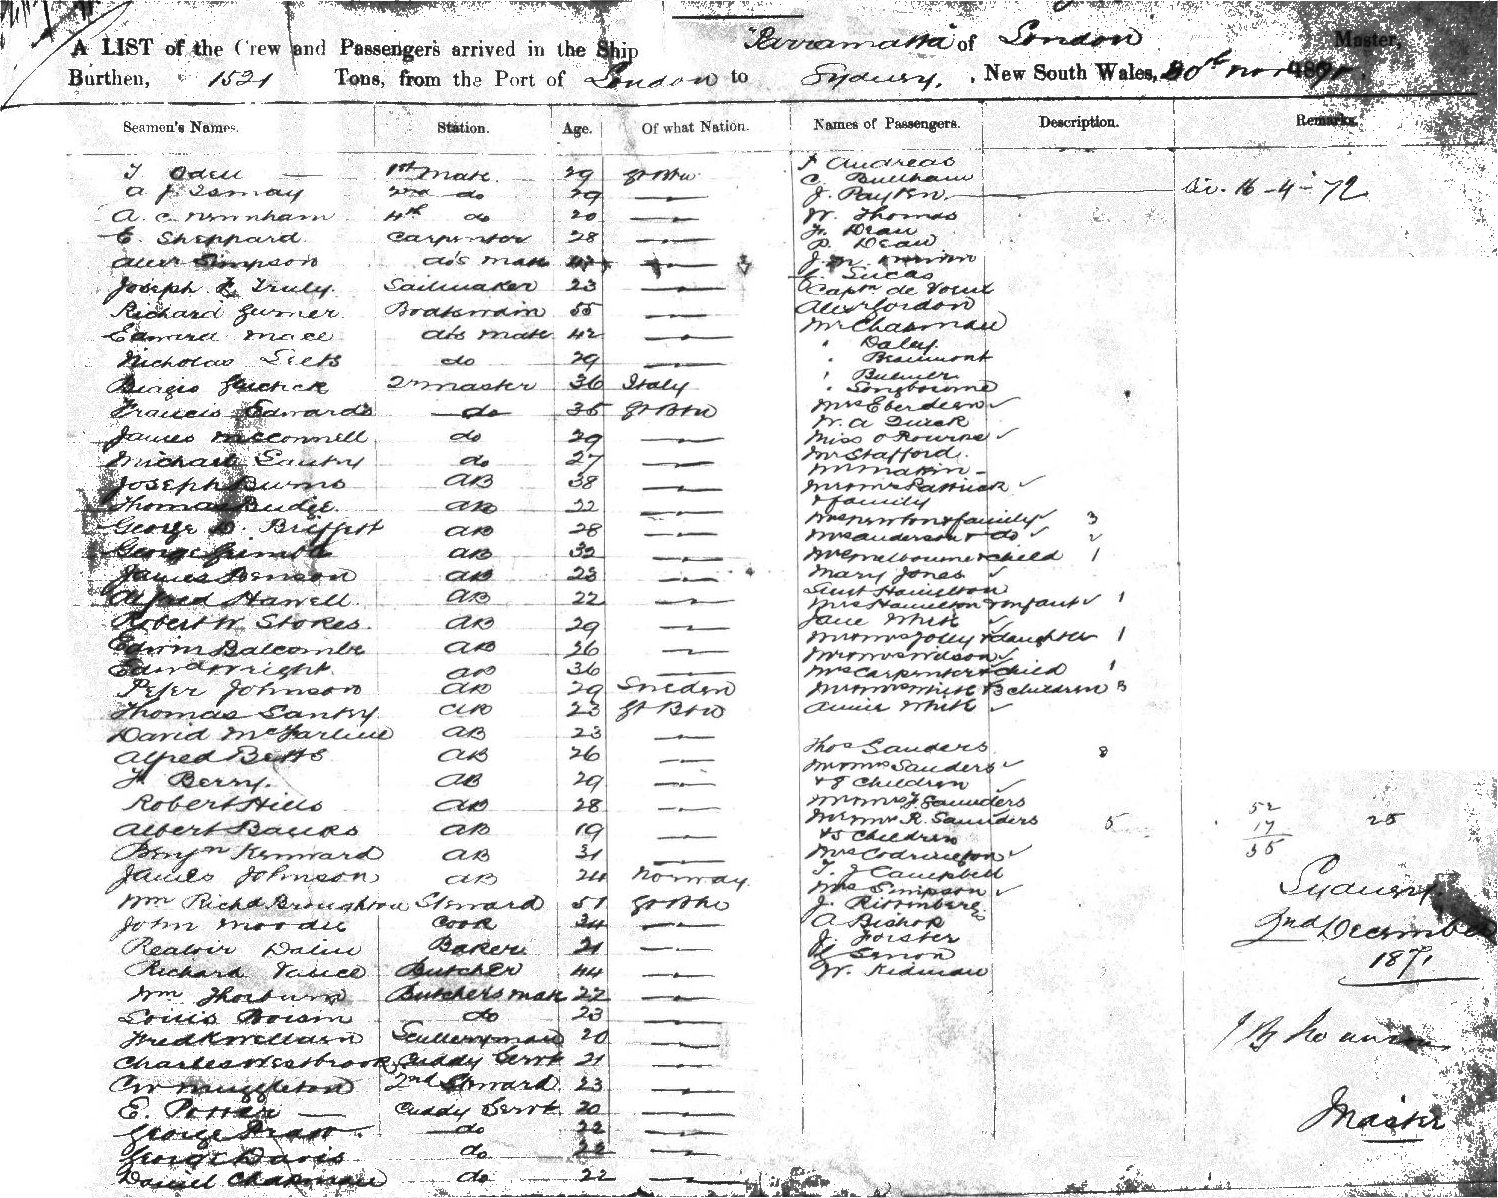 A LIST of the Crew and Passengers arrived in the Ship "Parramatta" of London Master,
Burthen, 1521 Tons, from the Port of London to Sydney, New South Wales, 30th Novr 1871.
Seamen's Names. Station. Age. Of what Nation. Names of Passengers. Description. Remarks.
T Odell — 1st Mate 29 Gt Btn
A J Ismay 2nd do 29 —
A. C. Newnham 4th do 20 —
E. Sheppard Carpenter 28 —
Alexr Simpson do's Mate —
Joseph Truly Sailmaker 23 —
Richard Boatswain 55 —
Edward Mace do's Mate 42 —
Nicholas do 29 —
Biagio Qr Master 36 Italy
Francis Edwards do 35 Gt Btn
James McConnell do 29 —
Michael Santry do 27 —
Joseph Burns AB 38 —
Thomas Budge AB 22 —
George D. Briffett AB 28 —
George AB 32 —
James Benson AB 23 —
Alfred Hawell AB 22 —
Robert W. Stokes AB 29 —
Edwin Balcombe AB 26 —
Edwd Wright AB 36 —
Peter Johnson AB 29 Sweden
Thomas Santry AB 23 Gt Btn
David McFarline AB 23 —
Alfred Betts AB 26 —
H Berry. AB 29 —
Robert Hills AB 28 —
Albert Banks AB 19 —
Benjn Kennard AB 31 —
James Johnson AB 24 Norway
Wm Richd Broughton Steward 51 Gt Btn
John Moodie Cook 34 —
Baker 21 —
Richard Vance Butcher 44 —
Wm Thorburn Butchers Mate 22 —
Louis do 23 —
Fredk Wellarn Sculleryman 20 —
Charles Westbrook Cuddy Servt 21 —
C W Muggleton 2nd Steward 23 —
E. Potter — Cuddy Servt 20 —
George do 22 —
George Davis do 22 —
Daniel Chapman do 22 —
Andreas
C Bullham
J. Payten — 16-4-72
W. Thomas
H. Dean
P. Dean
J. M.
Lucas
Captn de
Alexr Gordon
Mr Chapman
" Daley
" Beaumont
" Bulwer
" Longbourne
Mrs Eberdeen ✓
W. A Quick
Miss O'Rourke ✓
Mr Stafford
Mr Makin -
Mr & Mrs Patrick ✓
& family
Mrs Newton & family ✓ 3
Mrs Sanderson & do ✓ 2
Mrs Melbourne & child 1
Mary Jones ✓
Hamilton
Mrs Hamilton & Infant ✓ 1
Jane White ✓
Mr & Mrs Jolly & daughter 1
Mr & Mrs Wilson ✓
Mrs Carpenter & child 1
Mr & Mrs White & 3 children 3
Annie White ✓
Thos Sanders
Mr & Mrs Sanders ✓ 8
& 8 Children ✓
Mr & Mrs J. Saunders
Mr & Mrs R. Saunders 5
& 5 Children
Mrs Codrington ✓
T. J Campbell
Mrs Simpson ✓
J.
A Bishop
J Forster
W. Kidman
52
17 25
35
Sydney.
2nd December
1871.
Master